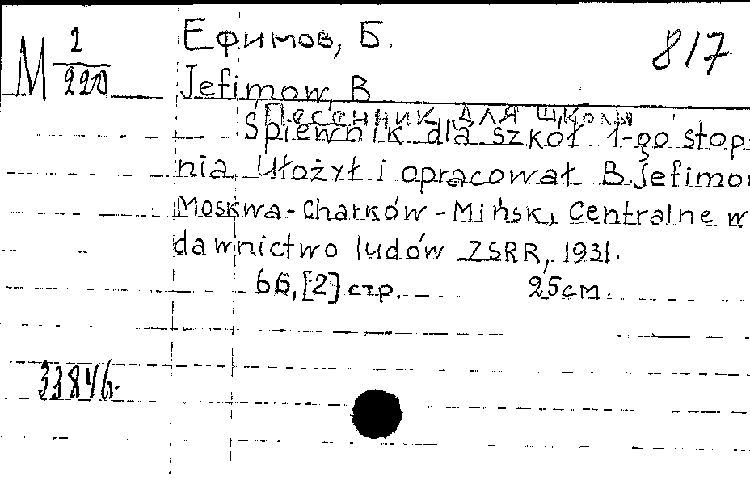 M 2/220
Ефимов, Б.
817
Jefimow, B
Песенник для школы
Śpiewnik dla szkół 1-go stop
nia. Ułożył i opracował B. Jefimo
Moskwa-Charków-Mińsk, Centralne w
dawnictwo ludów ZSRR, 1931.
66, [2] стр. 25см.
33846.